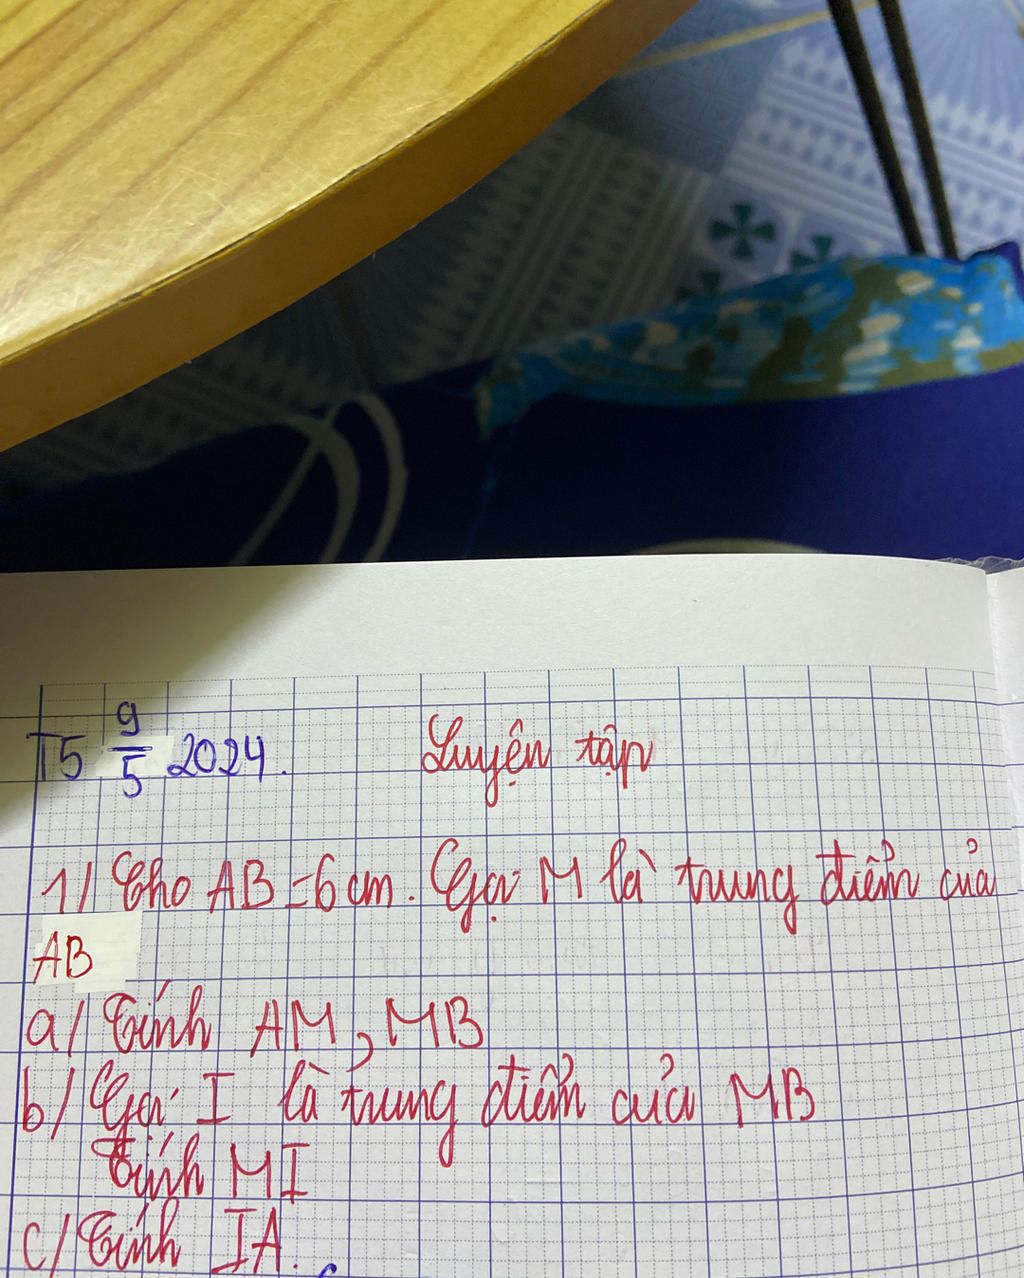 T5 9/5 2024. Luyện tập
1/ Cho AB = 6 cm. Gọi M là trung điểm của
AB
a/ Tính AM, MB
b/ Gọi I là trung điểm của MB
Tính MI
c/ Tính IA.